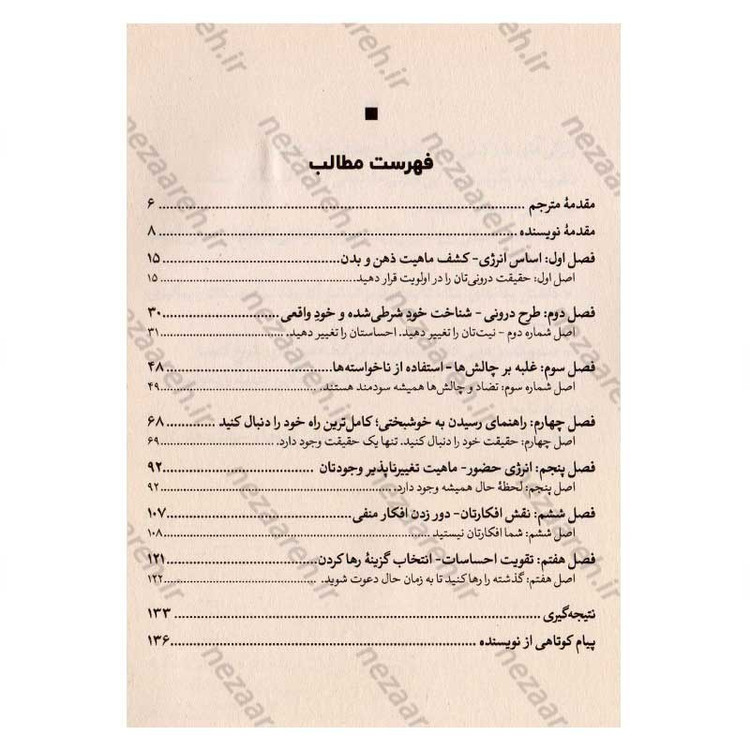 فهرست مطالب
مقدمهٔ مترجم ........ ۶
مقدمهٔ نویسنده ........ ۸
فصل اول: اساس انرژی- کشف ماهیت ذهن و بدن ........ ۱۵
اصل اول: حقیقت درونی‌تان را در اولویت قرار دهید. ........ ۱۵
فصل دوم: طرح درونی - شناخت خودِ شرطی‌شده و خودِ واقعی ........ ۳۰
اصل شماره دوم - نیت‌تان را تغییر دهید. احساستان را تغییر دهید. ........ ۳۱
فصل سوم: غلبه بر چالش‌ها - استفاده از ناخواسته‌ها ........ ۴۸
اصل شماره سوم: تضاد و چالش‌ها همیشه سودمند هستند. ........ ۴۹
فصل چهارم: راهنمای رسیدن به خوشبختی؛ کامل‌ترین راه خود را دنبال کنید ........ ۶۸
اصل چهارم: حقیقت خود را دنبال کنید. تنها یک حقیقت وجود دارد. ........ ۶۹
فصل پنجم: انرژی حضور- ماهیت تغییرناپذیر وجودتان ........ ۹۲
اصل پنجم: لحظهٔ حال همیشه وجود دارد. ........ ۹۲
فصل ششم: نقش افکارتان- دور زدن افکار منفی ........ ۱۰۷
اصل ششم: شما افکارتان نیستید ........ ۱۰۸
فصل هفتم: تقویت احساسات- انتخاب گزینهٔ رها کردن ........ ۱۲۱
اصل هفتم: گذشته را رها کنید تا به زمان حال دعوت شوید. ........ ۱۲۲
نتیجه‌گیری ........ ۱۳۳
پیام کوتاهی از نویسنده ........ ۱۳۶
nezaareh.ir